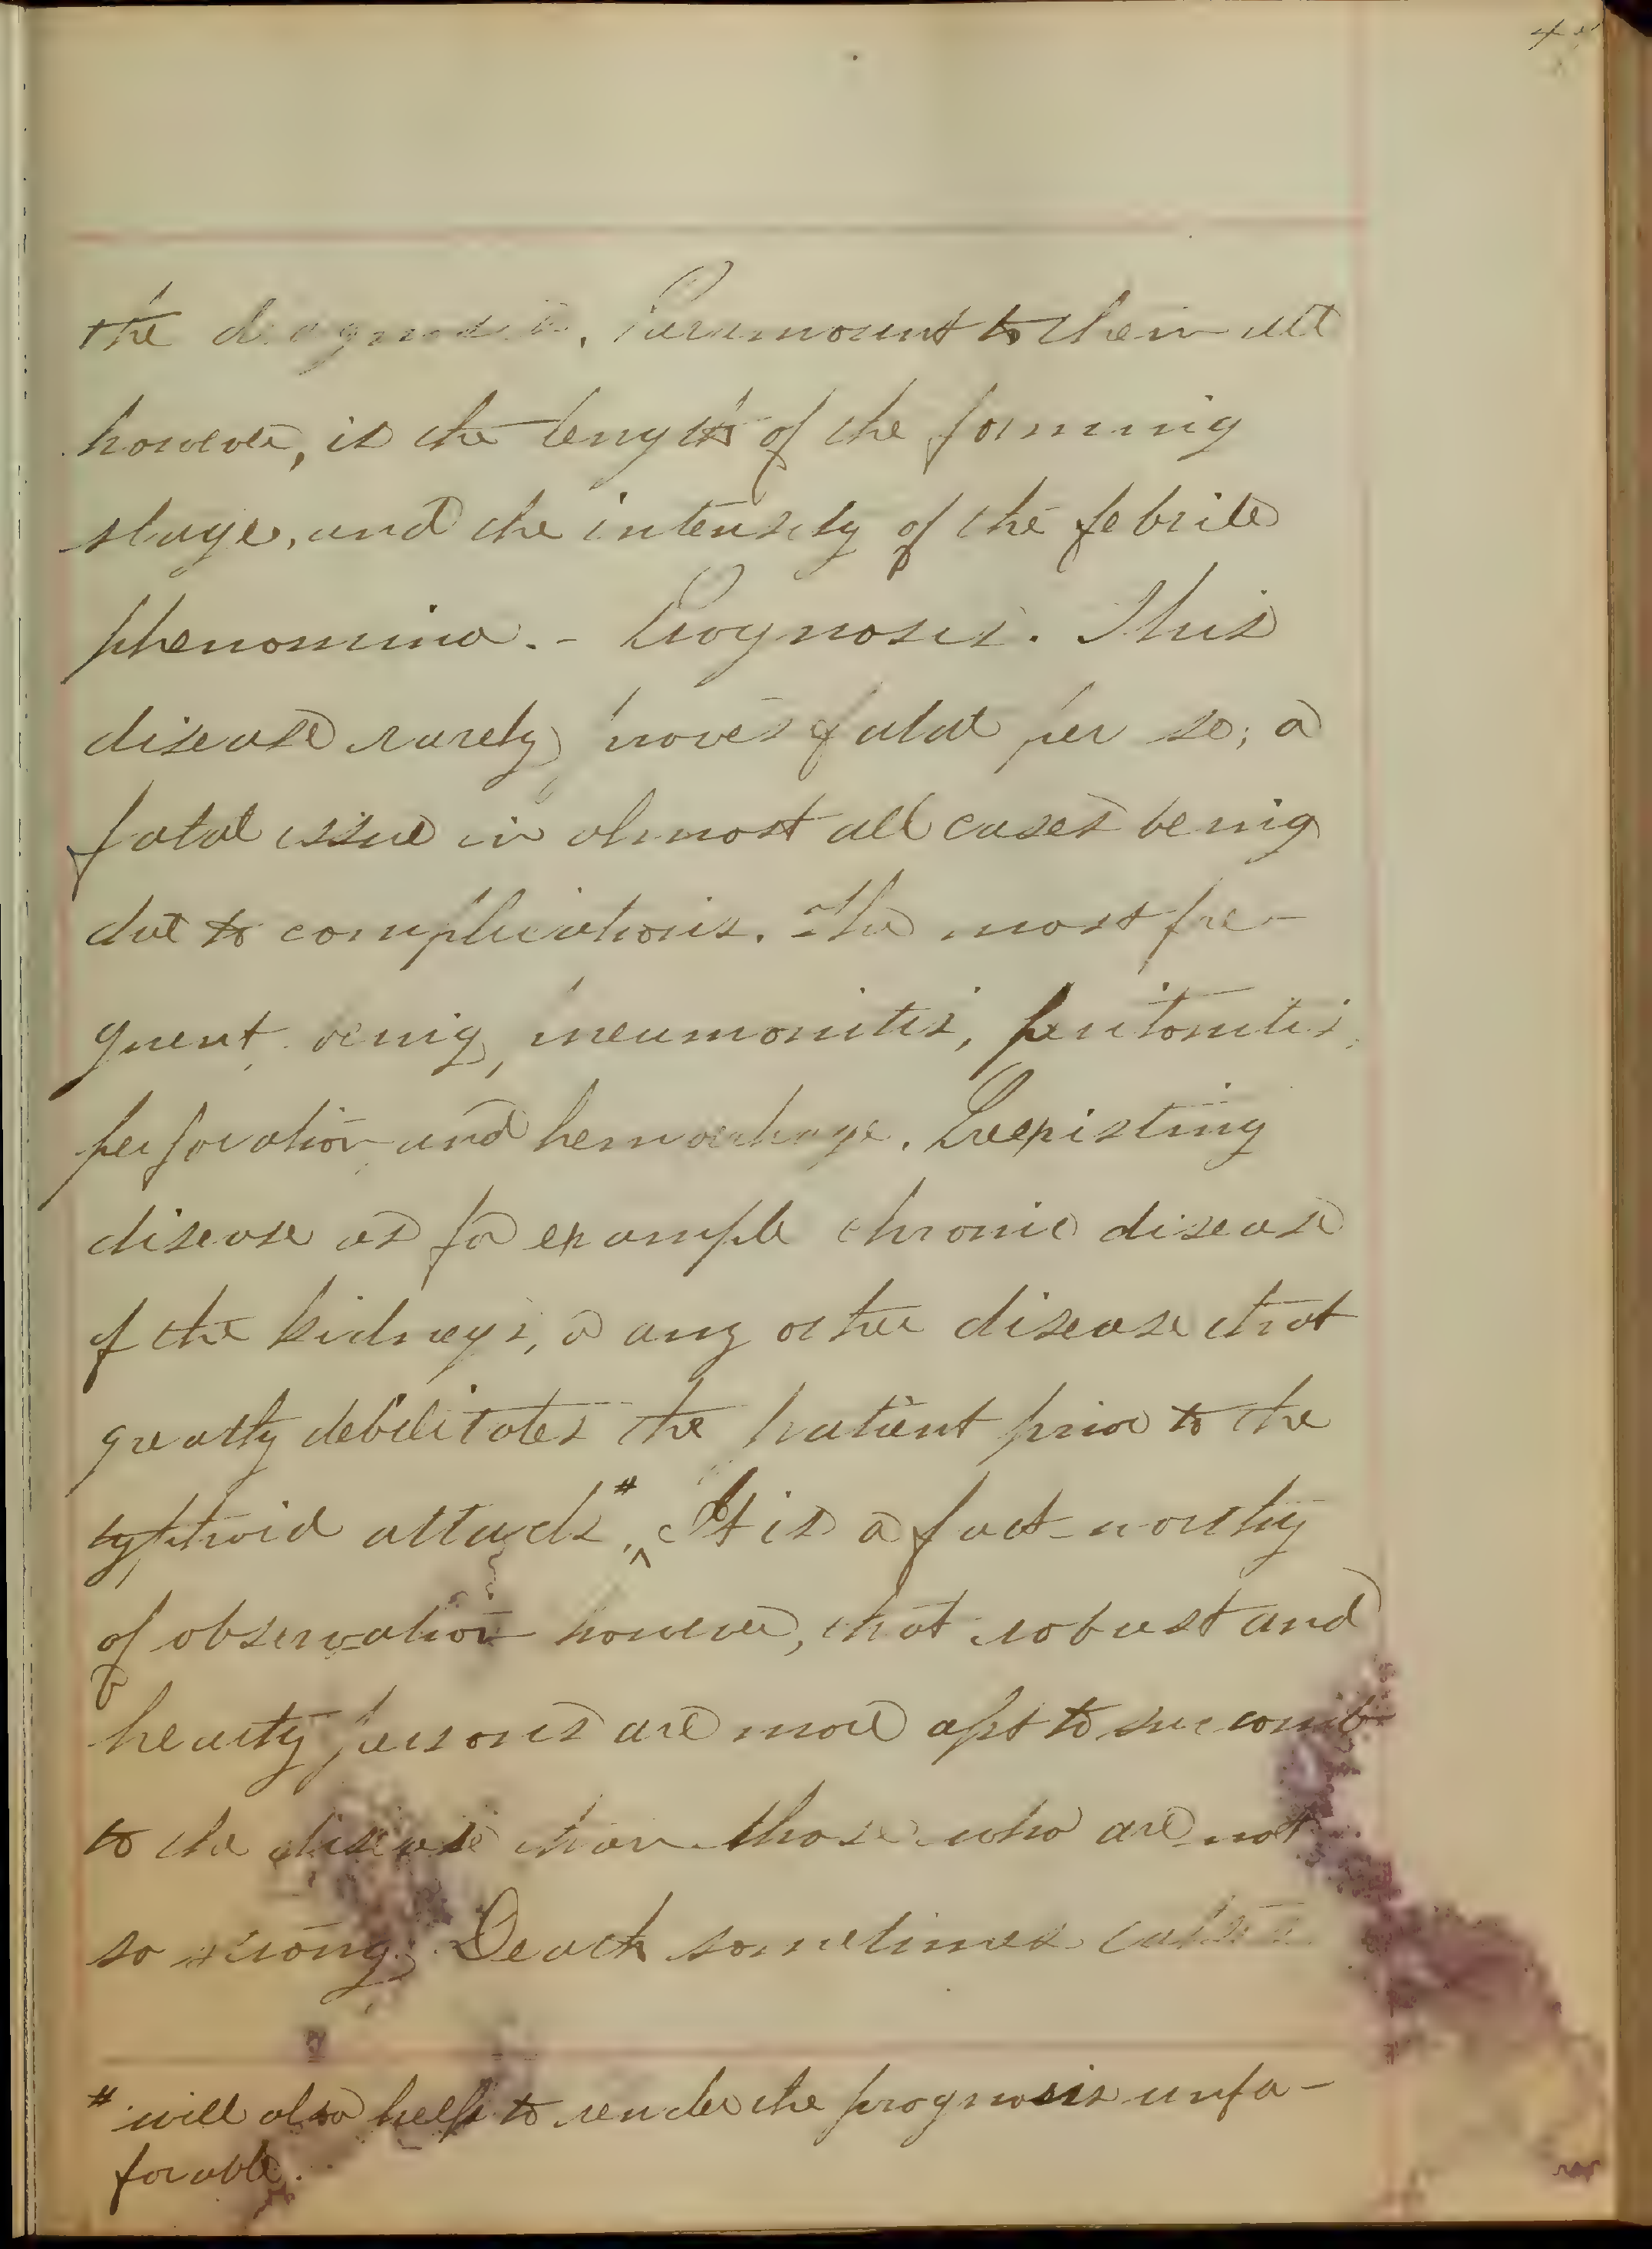 the diagnosis. Paramount to them all
however, is the length of the forming
stage, and the intensity of the febrile
phenomina. - Prognosis. This
disease rarely proves fatal per se; a
fatal issue in almost all cases being
due to complications. The most fre-
quent being, pneumonitis, peritonitis,
perforation and hemorrhage. Preexisting
disease as for example chronic disease
of the kidneys, or any other disease that
greatly debilitates the patient prior to the
typhoid attack #. ^ It is a fact worthy
of observation however, that robust and
hearty persons are more apt to succomb
to the disease than those who are not
so strong. Death sometimes
# will also help to render the prognosis unfa-
forable.